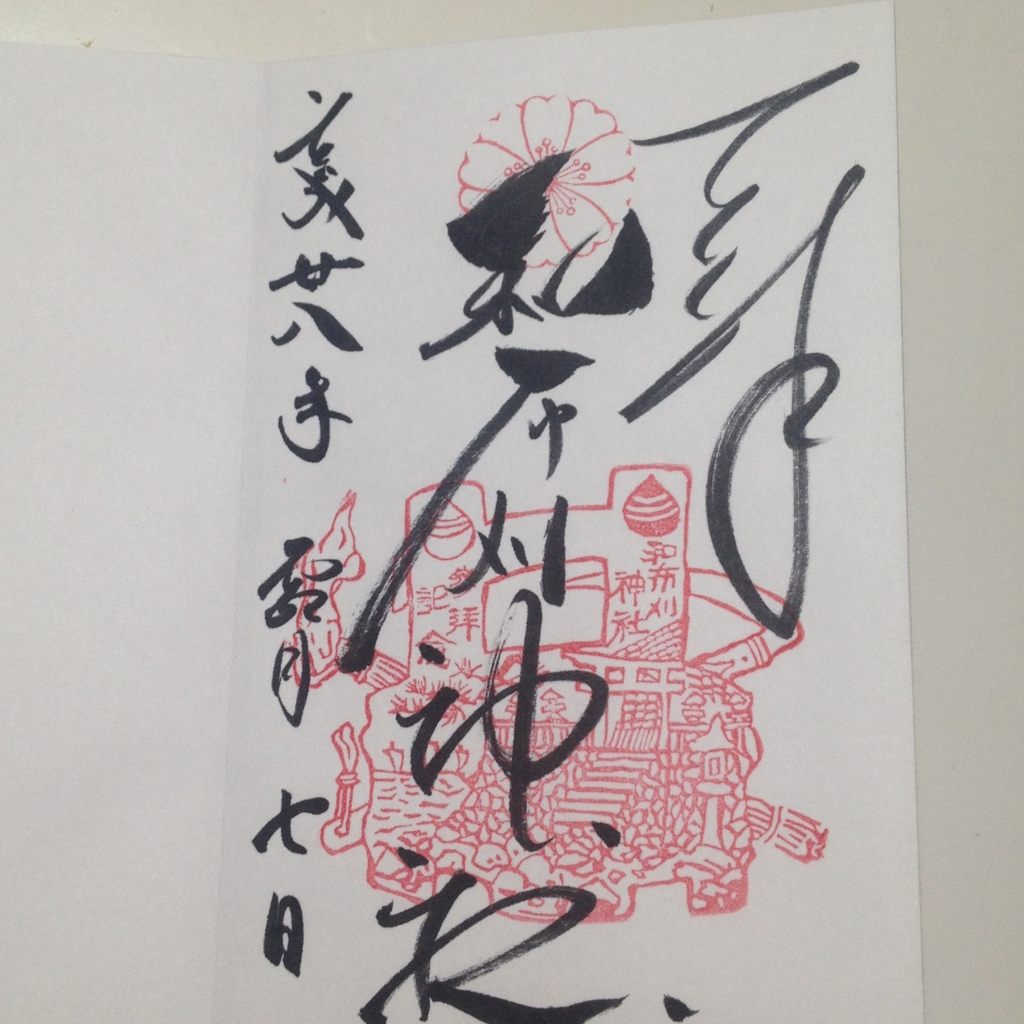 拝
和布刈神社
和布刈
神社
参拝
記念
平成廿八年 霜月 七日